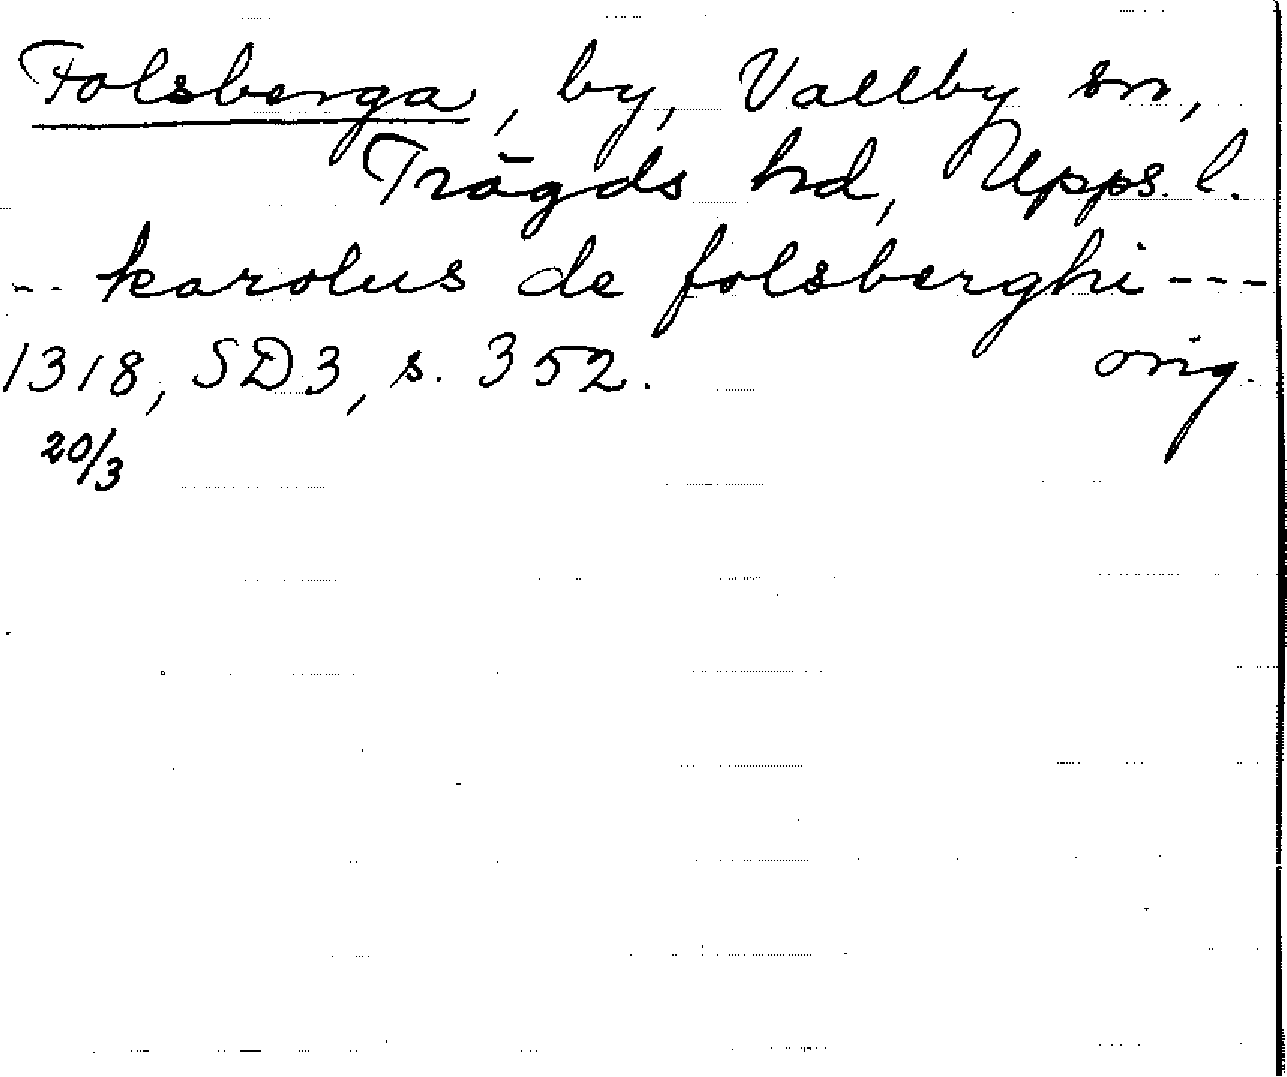 Folsberga, by, Vallby sn,
Trögds hd, Upps. l.
-- karolus de folsberghi ---
1318, SD3, s. 352. orig.
20/3